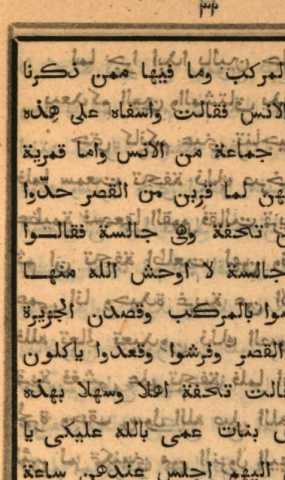 ٣٣
المركب وما فيها ممن ذكرنا
الانس فقالت واسفاه على هذه
جماعة من الانس واما قمرية
هن لما قربن من القصر حدّوا
تحفة وهى جالسة فقالــوا
جالسة لا اوحش الله منهــا
وا بالمركب وقصدن الجزيرة
القصر وفرشوا وقعدوا ياكلون
الت تحفة اهلا وسهلا بهذه
بنات عمى بالله عليكى يا
اليهم اجلس عندهن ساعة